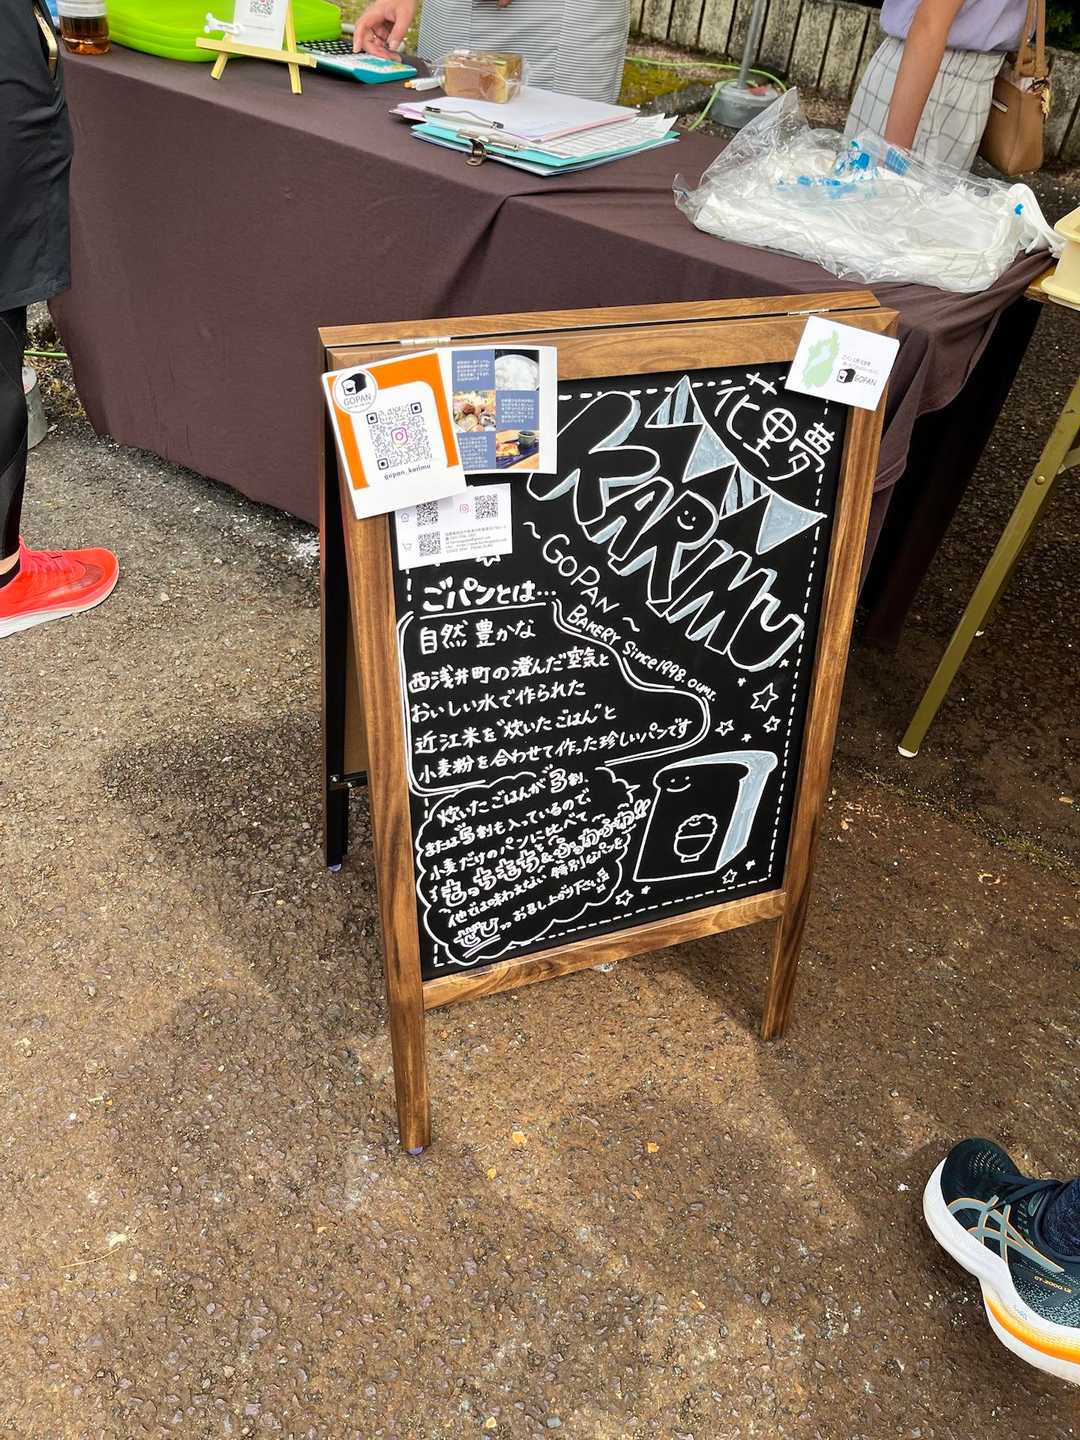 GOPAN
gopan_karimu
GOPAN
花里夢
KARIMU
～GOPAN～
BAKERY Since1998. oumi.
ごパンとは…
自然豊かな
西浅井町の澄んだ空気と
おいしい水で作られた
近江米を"炊いたごはん"と
小麦粉を合わせて作った珍しいパンです
炊いたごはんが3割、
または5割も入っているので、
小麦だけのパンに比べて
もっちもち&ふわふわ!!
他では味わえない 特別なパンを
ぜひお召し上がり下さい